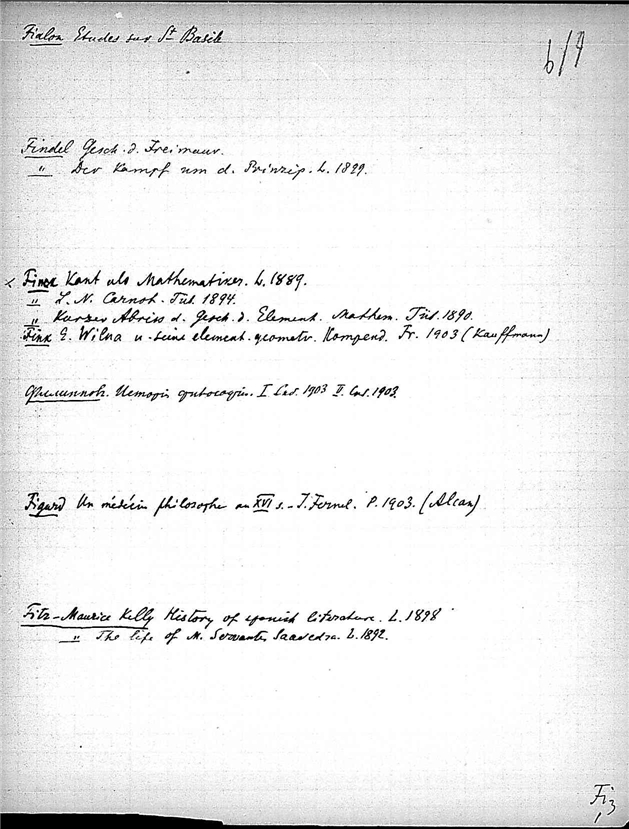 Fialon Etudes sur St Basile
b/9
Findel Gesch. d. Freimaur.
" Der Kampf um d. Prinzip. L. 1899.
Fink Kant als Mathematiker. L. 1889.
" L. N. Carnot. Tüb. 1894.
" Kurzer Abriss d. Gesch. d. Element. Mathem. Tüb. 1890.
Fink E. u. seine element.-geometr. Kompend. Fr. 1903 (Kauffmann)
Филиппов. История философии. I Спб. 1903 II. Спб. 1903.
Figard Un médecin philosophe au XVI s. – J. Fernel. P. 1903. (Alcan)
Fitz-Maurice Kelly History of spanish literature. L. 1898
" The life of M. Servantes Saavedra. L. 1892.
Fi